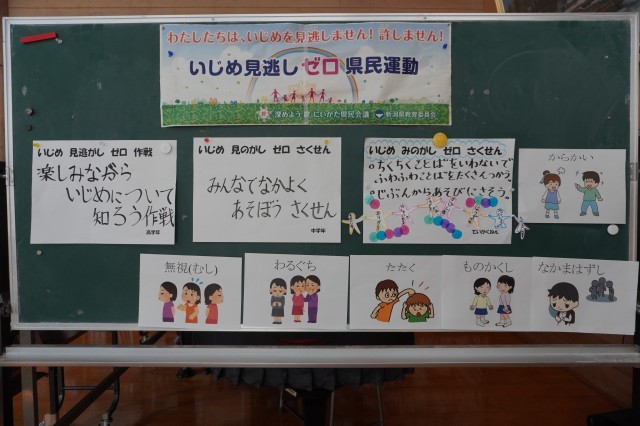 わたしたちは、いじめを見逃しません！許しません！
いじめ見逃しゼロ県民運動
深めよう 絆 にいがた県民会議
新潟県教育委員会
いじめ 見逃がし ゼロ 作戦
楽しみながら
いじめについて
知ろう作戦
高学年
いじめ 見のがし ゼロ さくせん
みんなでなかよく
あそぼう さくせん
中学年
いじめ みのがし ゼロ さくせん
。ちくちくことばをいわないで
ふわふわことばをたくさんつかう。
。じぶんからあそびにさそう。
ていがくねん
からかい
無視(むし)
わるぐち
たたく
ものかくし
なかまはずし